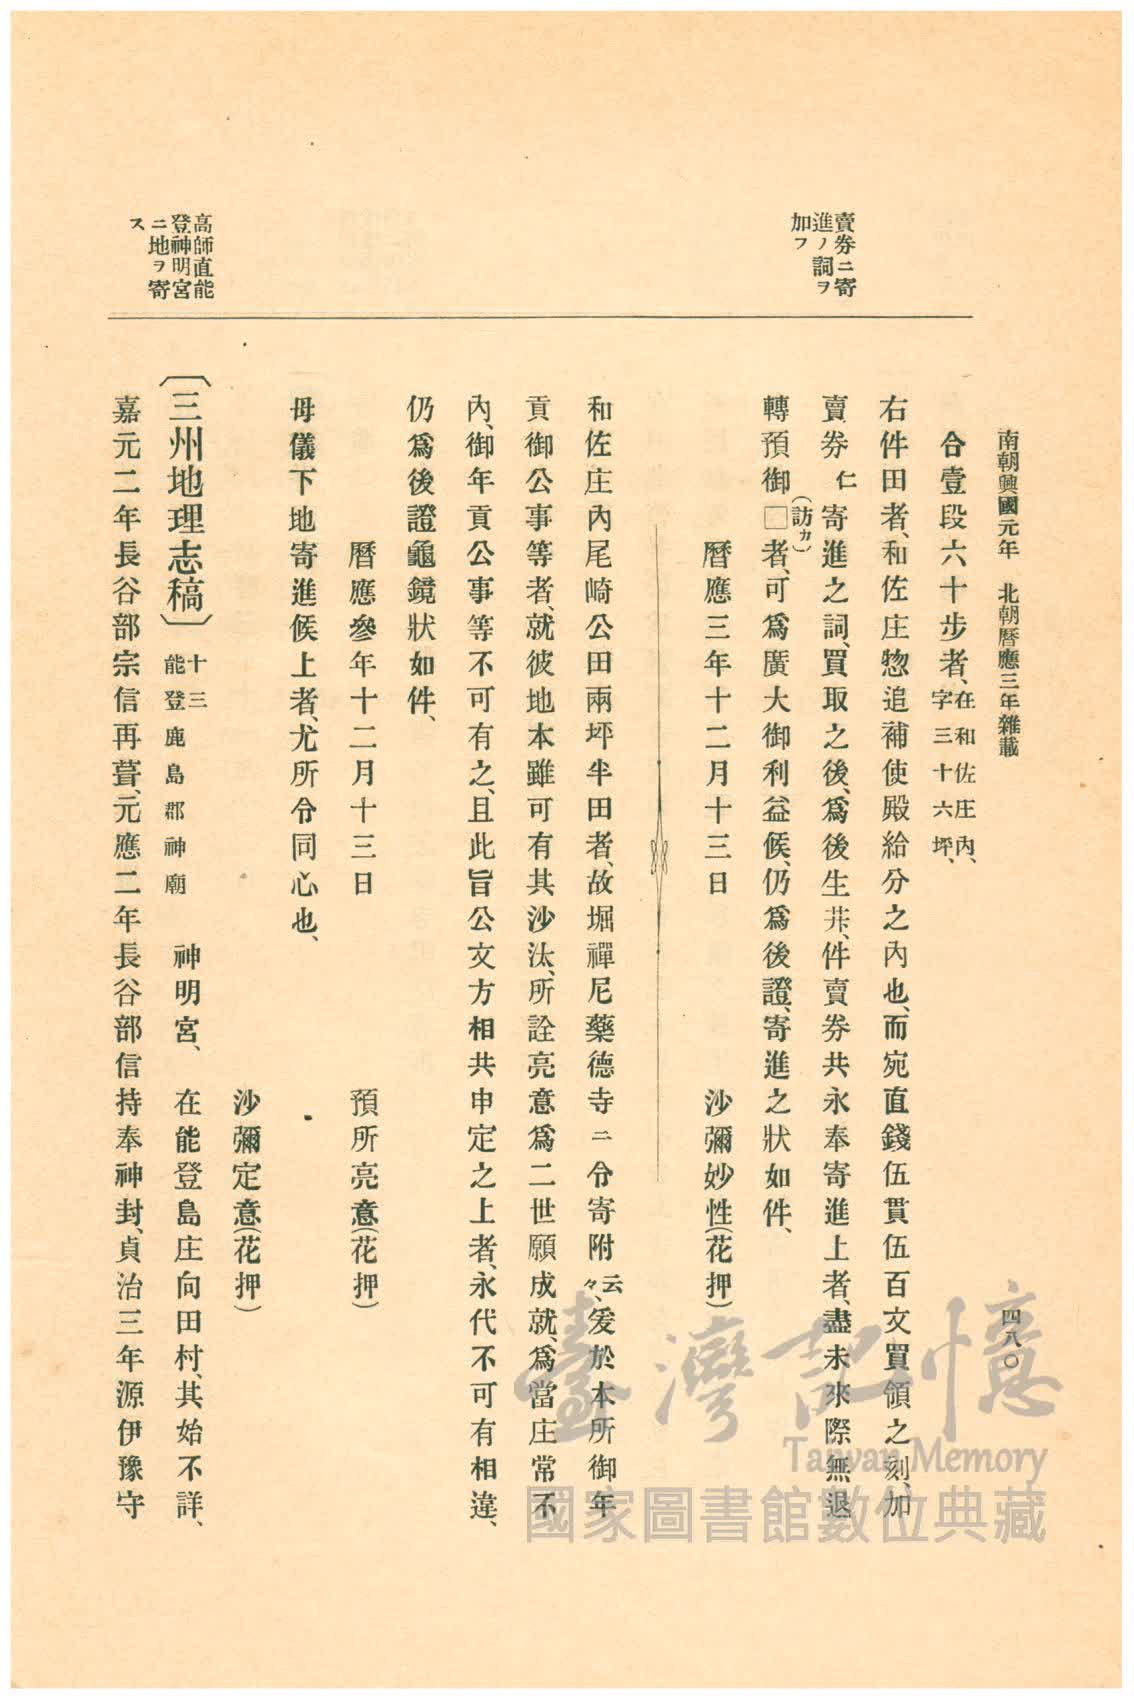 南朝興國元年　北朝曆應三年雜載
四八〇
賣券ニ寄
進ノ詞ヲ
加フ
高師直能
登神明宮
ニ地ヲ寄
ス
合壹段六十步者、在和佐庄內、
字三十六坪、
右件田者、和佐庄惣追補使殿給分之內也、而宛直錢伍貫伍百文買領之刻、加
賣券仁寄進之詞、買取之後、爲後生井、件賣券共永奉寄進上者、盡未來際無退
轉預御□(訪カ)者、可爲廣大御利益候、仍爲後證、寄進之狀如件、
曆應三年十二月十三日　沙彌妙性(花押)
和佐庄內尾崎公田兩坪半田者、故堀禪尼藥德寺ニ令寄附云々、爰於本所御年
貢御公事等者、就彼地本雖可有其沙汰、所詮亮意爲二世願成就、爲當庄常不
內、御年貢公事等不可有之、且此旨公文方相共申定之上者、永代不可有相違、
仍爲後證龜鏡狀如件、
曆應參年十二月十三日　預所亮意(花押)
母儀下地寄進候上者、尤所令同心也、
沙彌定意(花押)
〔三州地理志稿〕十三
能登鹿島郡神廟　神明宮、　在能登島庄向田村、其始不詳、
嘉元二年長谷部宗信再葺、元應二年長谷部信持奉神封、貞治三年源伊豫守
臺灣記憶
Taiwan Memory
國家圖書館數位典藏